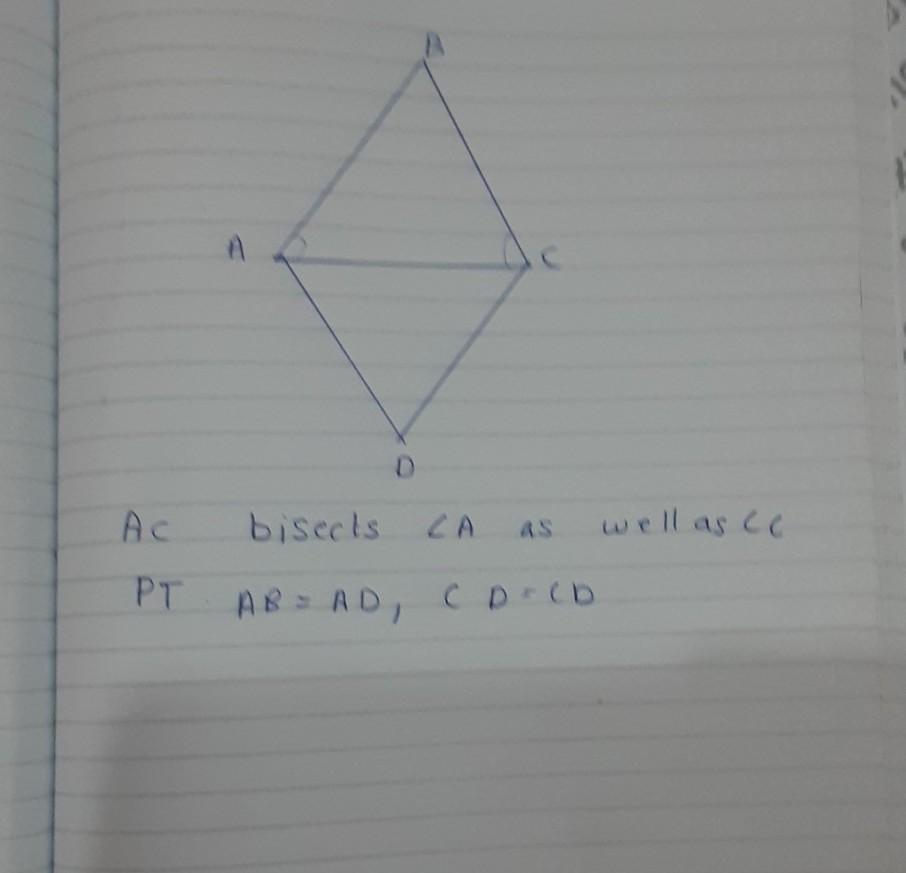 B
A
C
D
AC bisects ∠A as well as ∠C
PT AB = AD, CD = CD